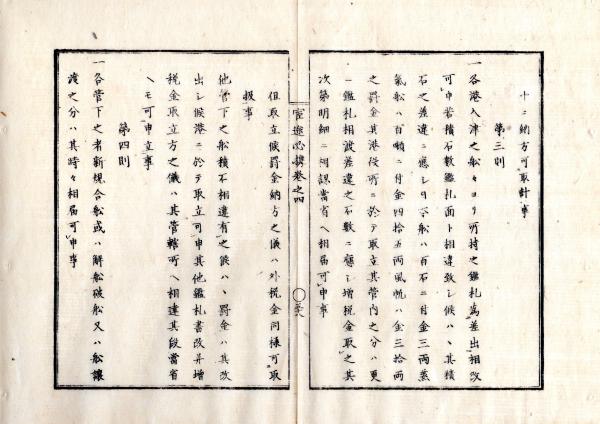 十ニ納方可取計事
第三則
一各港入津之船々ヨリ所持之鑑札為差出相改
可申若積石数鑑札面ト相違致シ候ハヽ其積
石之差違ニ應シ日本船ハ百石ニ付金三両蒸
氣船ハ百噸ニ付金四拾五両風帆ハ金三拾両
之罰金其港役所ニ於テ取立其管内之分ハ更
ニ鑑札相渡差違之石数ニ應シ増税金取之其
次第明細ニ相認當省ヘ相届可申事
官途必携巻之四
但取立候罰金納方之儀ハ外税金同様可取
扱事
他管下之船積石相違有之候ハヽ罰金ハ其改
出シ候港ニ於テ取立可申其他鑑札書改并増
税金取立方之儀ハ其管轄所ヘ相達其段當省
ヘモ可申立事
第四則
一各管下之者新規合船或ハ解船破船又ハ船譲
渡之分ハ其時々相届可申事